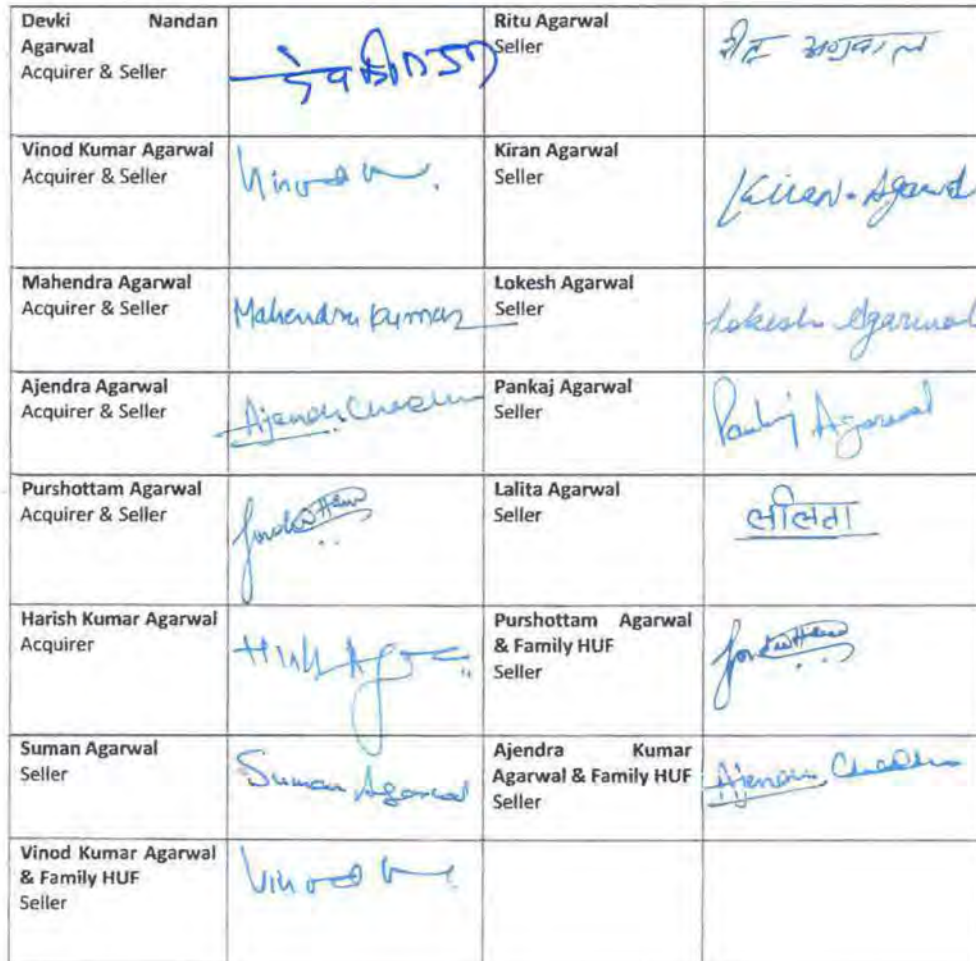 Devki Nandan
Agarwal
Acquirer & Seller
Ritu Agarwal
Seller
रीतु अग्रवाल
Vinod Kumar Agarwal
Acquirer & Seller
Vinod
Kiran Agarwal
Seller
Kiran Agarwal
Mahendra Agarwal
Acquirer & Seller
Mahendra Kumar
Lokesh Agarwal
Seller
Lokesh Agarwal
Ajendra Agarwal
Acquirer & Seller
Pankaj Agarwal
Seller
Pankaj Agarwal
Purshottam Agarwal
Acquirer & Seller
Lalita Agarwal
Seller
ललिता
Harish Kumar Agarwal
Acquirer
Purshottam Agarwal
& Family HUF
Seller
Suman Agarwal
Seller
Suman Agarwal
Ajendra Kumar
Agarwal & Family HUF
Seller
Vinod Kumar Agarwal
& Family HUF
Seller
Vinod